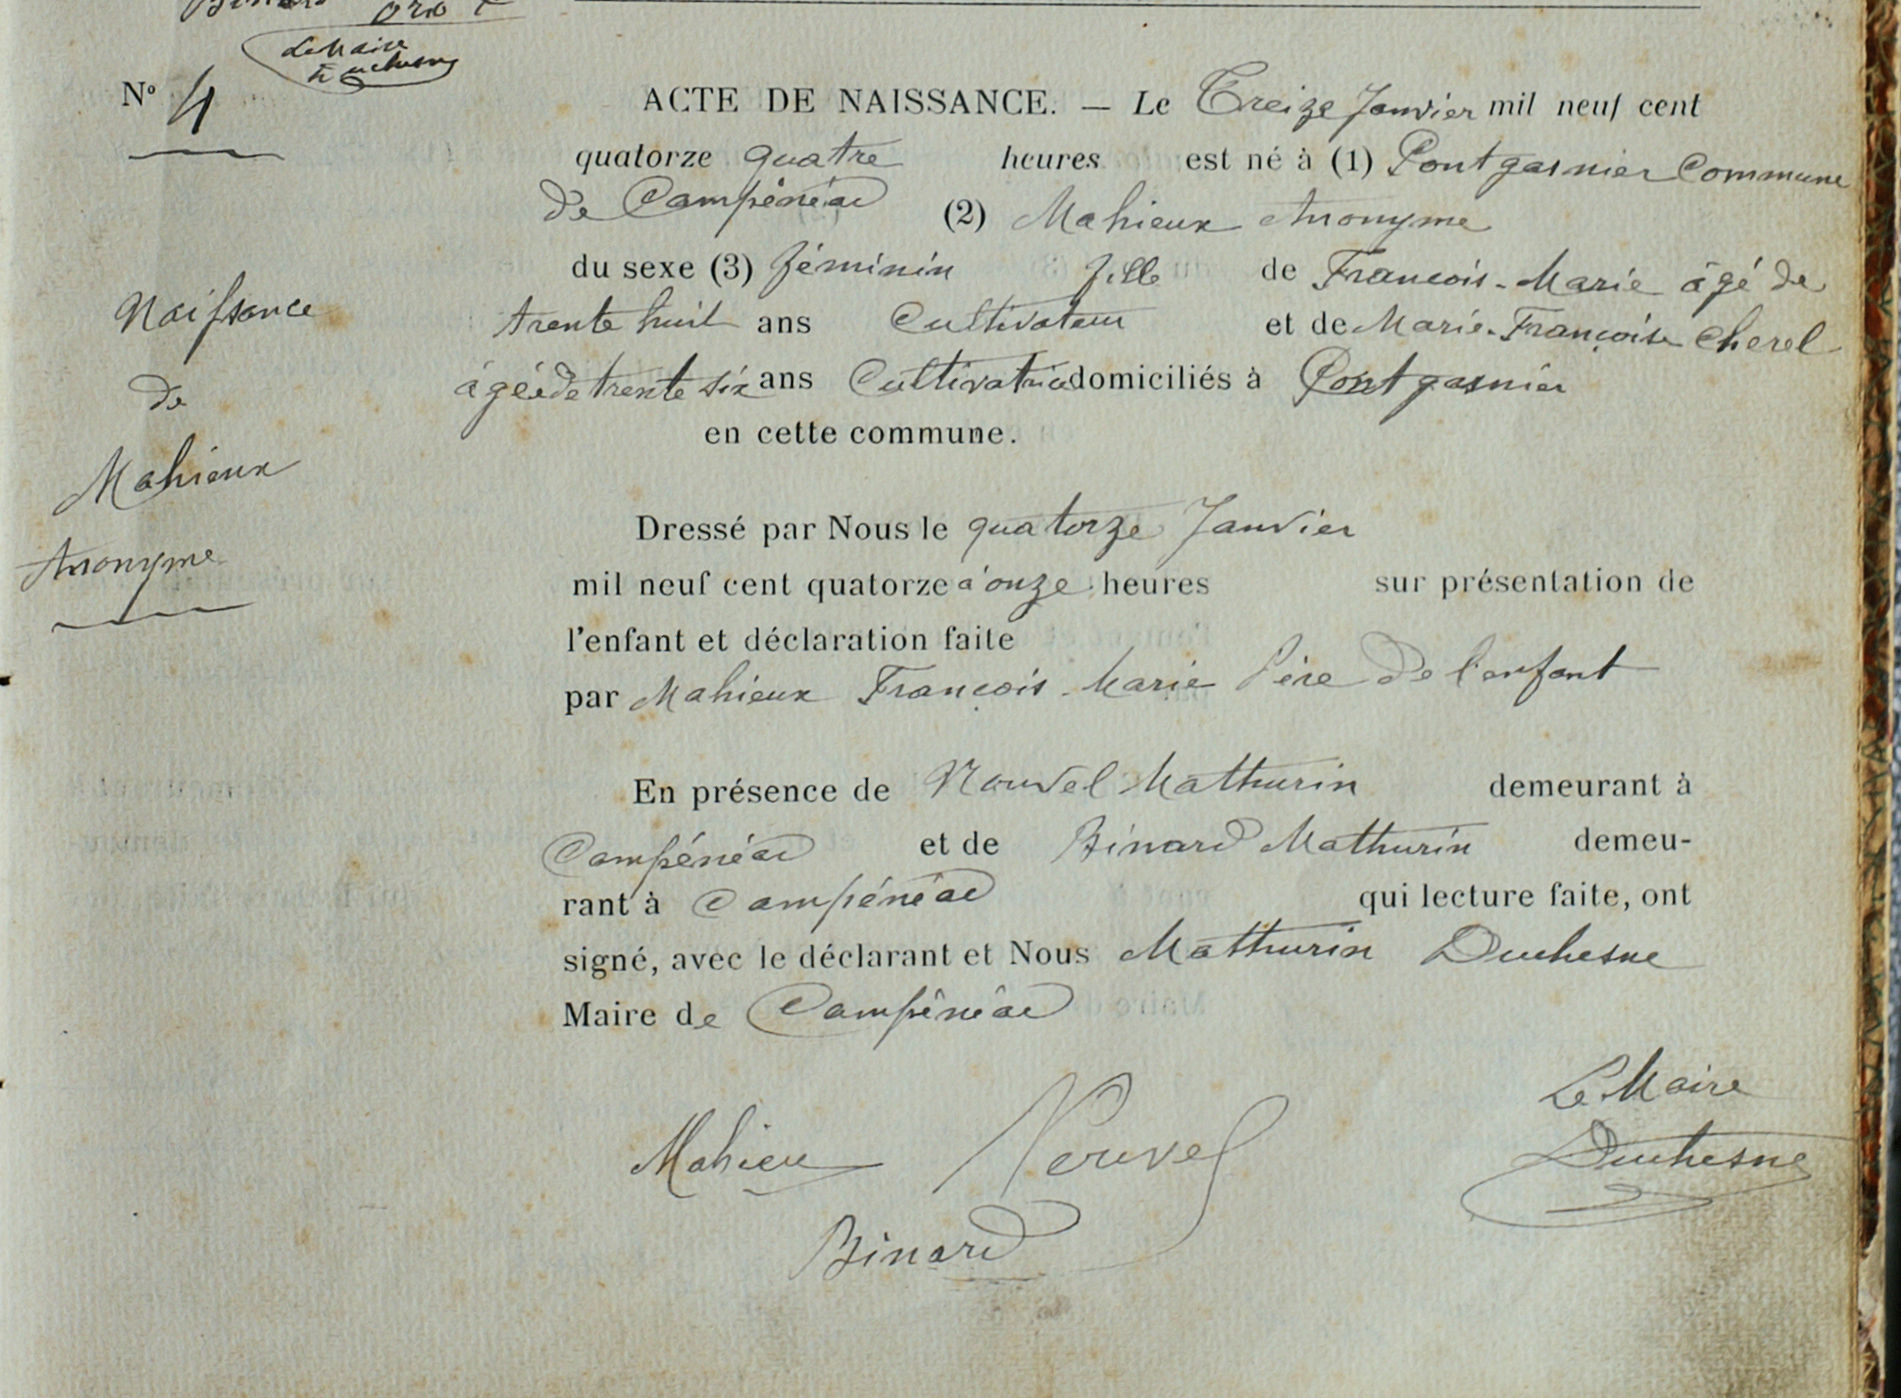 Le Maire
Duchesne
Nº 4
ACTE DE NAISSANCE. — Le Treize Janvier mil neuf cent
quatorze quatre heures est né à (1) Pontgasnier Commune
de Campénéac (2) Mahieux Anonyme
du sexe (3) féminin fille de Francois-Marie âgé de
trente huit ans Cultivateur et de Marie-Françoise Cherel
âgée de trente six ans Cultivatrice domiciliés à Pont gasnier
en cette commune.
Naissance
de
Mahieux
Anonyme
Dressé par Nous le quatorze Janvier
mil neuf cent quatorze à onze heures sur présentation de
l'enfant et déclaration faite
par Mahieux François-Marie Père de l'enfant
En présence de Nouvel Mathurin demeurant à
Campénéac et de Binard Mathurin demeu-
rant à Campénéac qui lecture faite, ont
signé, avec le déclarant et Nous Mathurin Duchesne
Maire de Campénéac
Le Maire
Mahieu Nouvel Duchesne
Binard